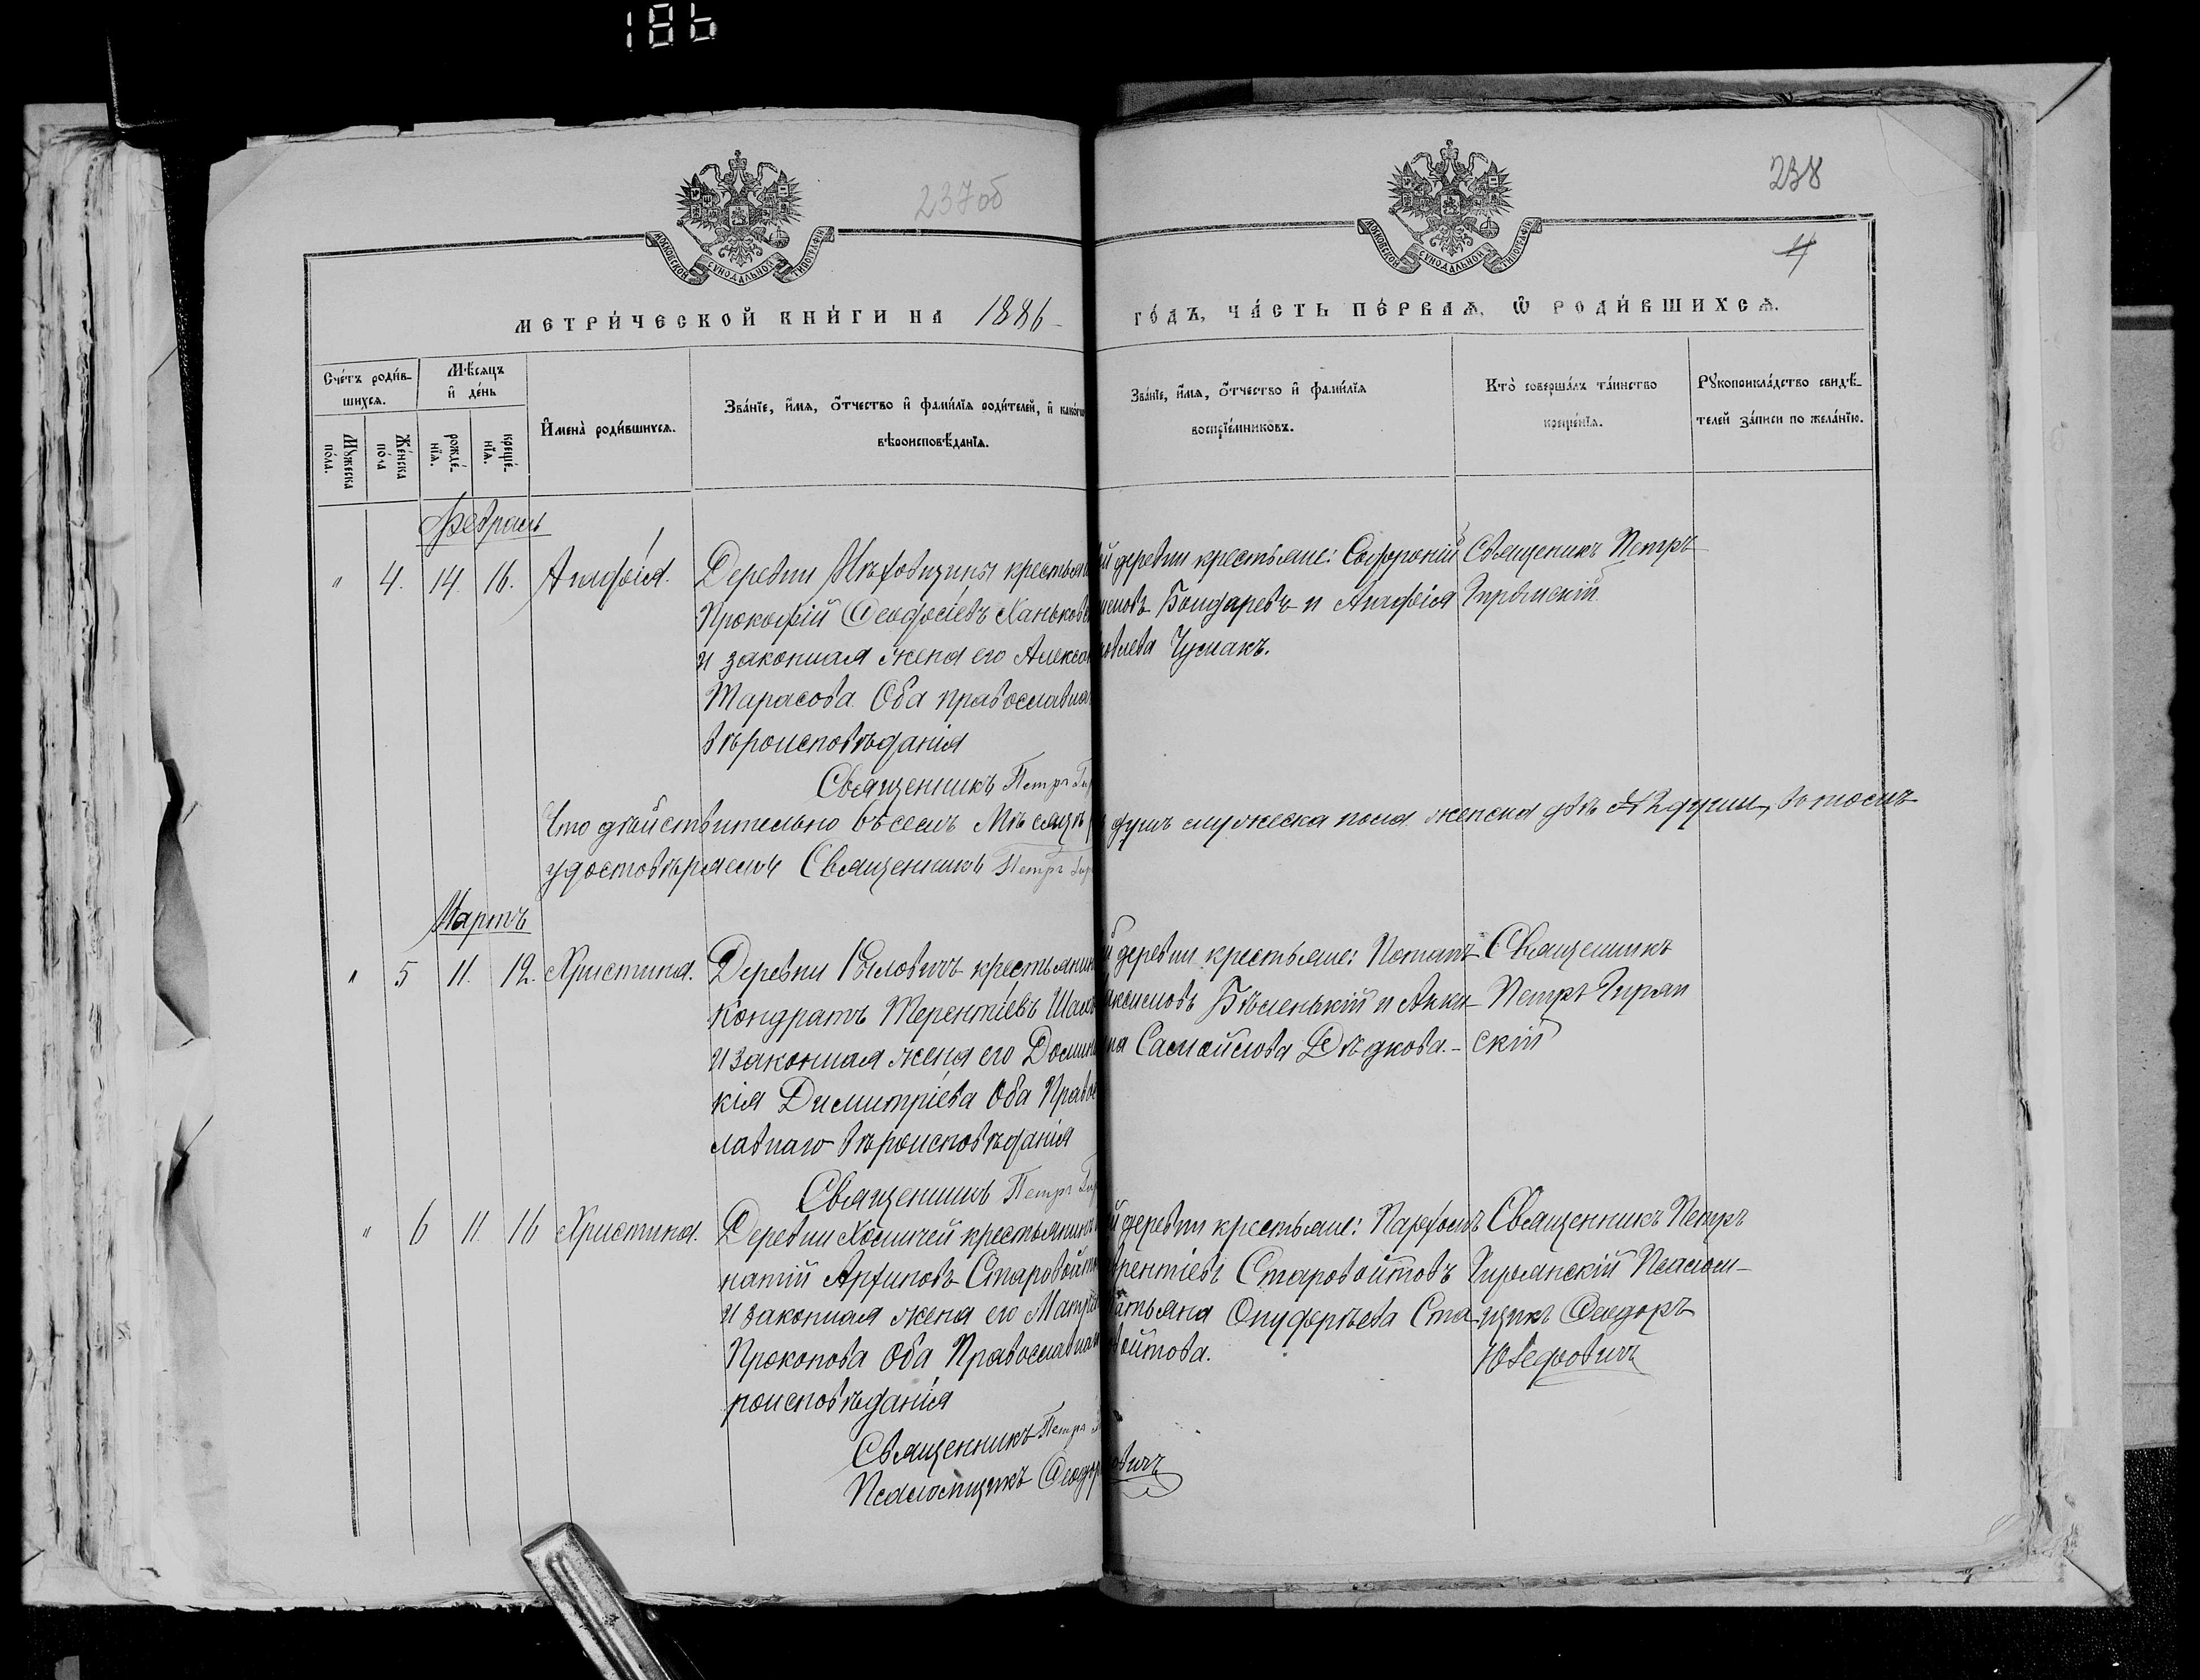 186
237об
238
4
МОСКОВСКОЙ СУНОДАЛЬНОЙ ТИПОГРАФІИ
МОСКОВСКОЙ СУНОДАЛЬНОЙ ТИПОГРАФІИ
МЕТРИ́ЧЕСКОЙ КНИ́ГИ НА 1886
ГО́ДЪ, ЧА́СТЬ ПЕ́РВАѦ, Ѿ РОДИ́ВШИХСѦ.
Сче́тъ роди́в-
шихсѧ.
Мѣ́сѧцъ
и де́нь
Мꙋжеска по́ла.
Же́нска по́ла
рожде́-
нїѧ.
креще́-
нїѧ.
Имена̀ роди́вшихсѧ.
Зва́нїе, и́мѧ, о́тчество и фами́лїѧ роди́телей, и како́гѡ
вѣроисповѣ́данїѧ.
Зва́нїе, и́мѧ, о́тчество и фами́лїѧ
воспрїе́мниковъ.
Кто̀ соверша́лъ та́инство
креще́нїѧ.
Рꙋкоприкла́дство свидѣ́-
телей за́писи по жела́нїю.
Февраль
" 4. 14. 16. Агафія. Деревни крестьян
Прокофій Феодосіевъ Ханьков
и законная жена его Алекса
Тарасова Оба православна
вѣроисповѣданія
Священникъ Петръ
й деревни крестьяне: Софроній
Бондаревъ и Агафія
овлева Чумакъ.
Священикъ Петръ
Что дѣйствительно въ семъ Мѣсяцѣ душъ мужеска пола женска двѣ 2 души, въ томъ
удостовѣряемъ Священникъ Петръ
Мартъ
" 5 11. 12. Христина. Деревни крестьянин
Кондратъ Терентіевъ
и законная жена его Домни
кія Димитріева Оба Правос
лавнаго вѣроисповѣданія
Священникъ Петръ
й деревни крестьяне: Потапъ
Бѣленькій и Аки
на Самойлова Дѣдкова.
Священникъ
Петръ Гирман
скій
" 6 11. 16 Христина. Деревни крестьянинъ
натій Архиповъ Старовойто
и законная жена его Матр
Прокопова Оба Православна
роисповѣданія
Священникъ Петръ
Псаломщикъ Феодоръ
й деревни крестьяне: Пархомъ
врентіевъ Старовойтовъ
атьяна Онуфріева Ста
войтова.
Священникъ Петръ
Гирманскій Псалом-
щикъ Феодоръ